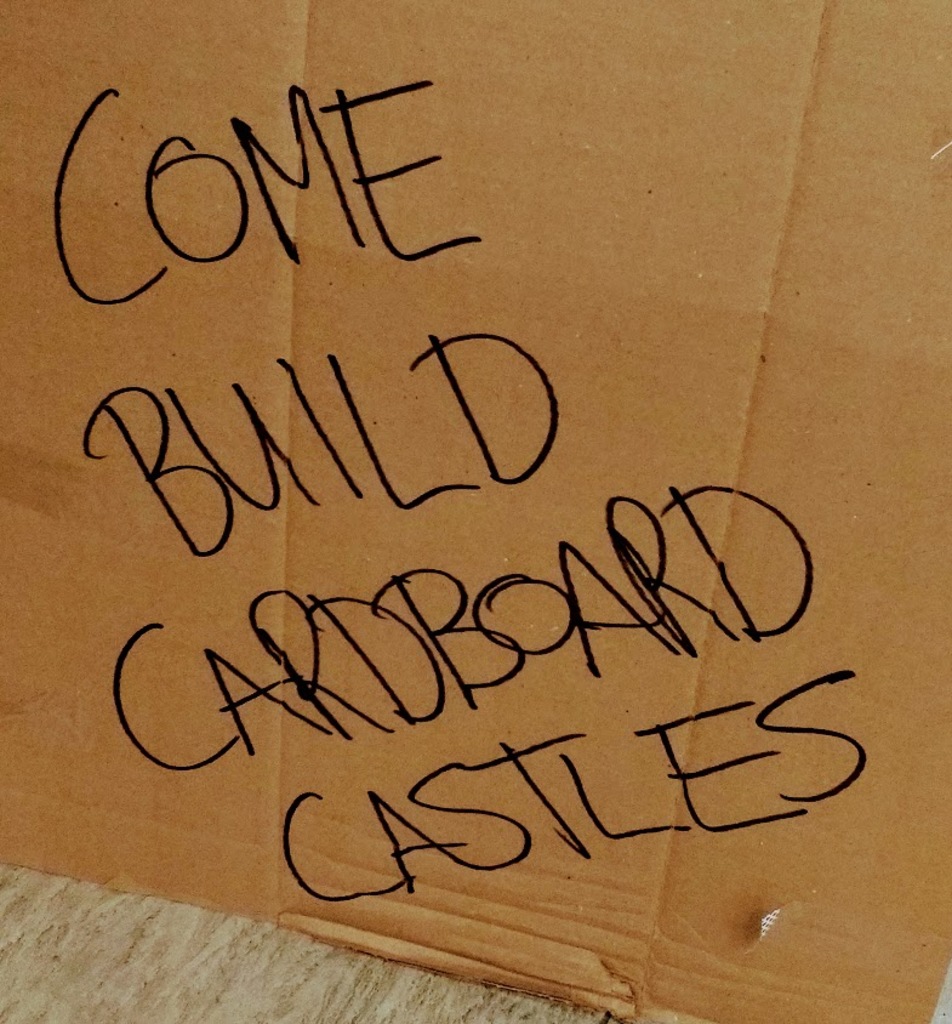 COME
BUILD
CARDBOARD
CASTLES